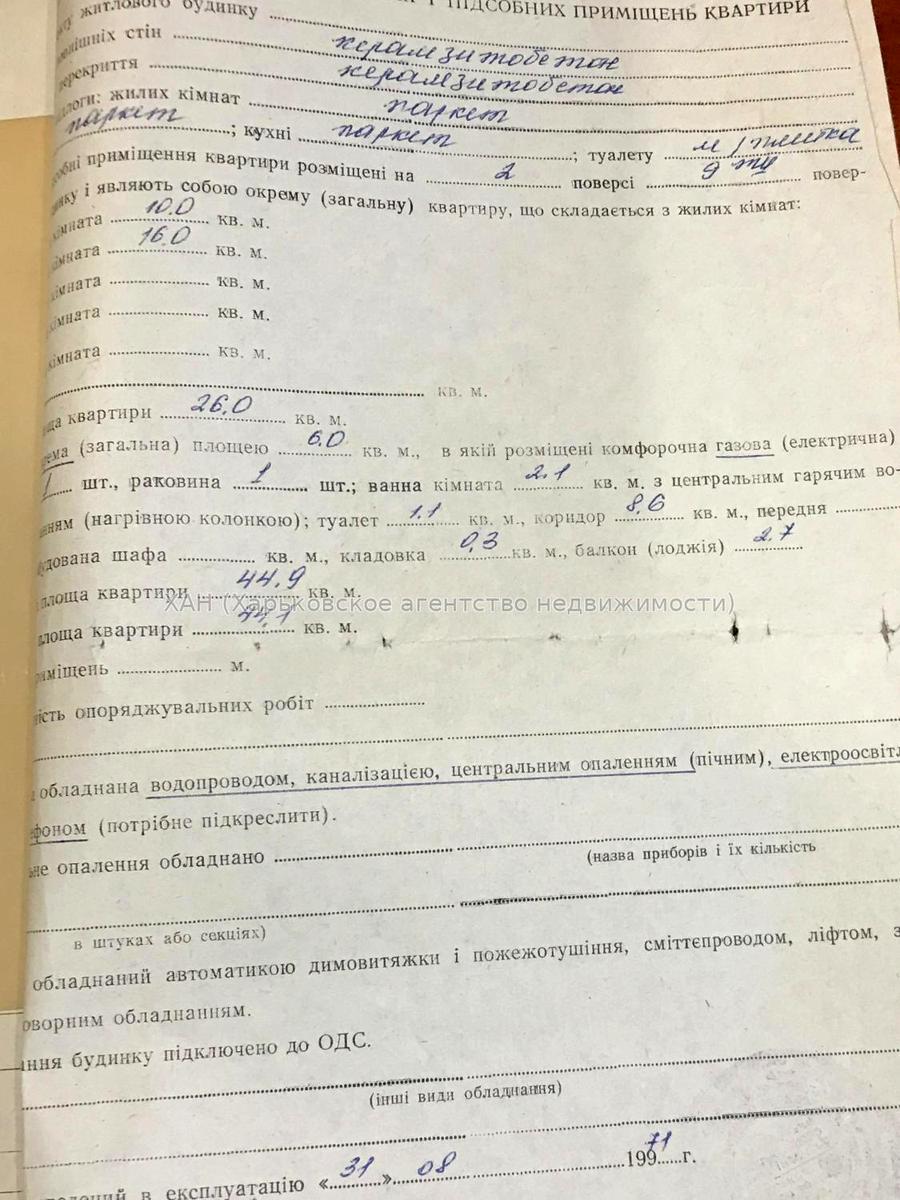 І ПІДСОБНИХ ПРИМІЩЕНЬ КВАРТИРИ
житлового будинку
стін керамзитобетон
перекриття керамзитобетон
жилих кімнат паркет
паркет ; кухні паркет ; туалету м/плитка
приміщення квартири розміщені на 2 поверсі 9 повер-
і являють собою окрему (загальну) квартиру, що складається з жилих кімнат:
кімната 10.0 кв. м.
кімната 16.0 кв. м.
кімната кв. м.
кімната кв. м.
кімната кв. м.
кв. м.
квартири 26.0 кв. м.
(загальна) площею 6.0 кв. м., в якій розміщені комфорочна газова (електрична)
1 шт., раковина 1 шт.; ванна кімната 2.1 кв. м. з центральним гарячим во-
(нагрівною колонкою); туалет 1.1 кв. м., коридор 8,6 кв. м., передня
шафа кв. м., кладовка 0,3 кв. м., балкон (лоджія) 2.7
площа квартири 44.9 кв. м.
ХАН (Харьковское агентство недвижимости)
площа квартири 44,1 кв. м.
м.
опоряджувальних робіт
обладнана водопроводом, каналізацією, центральним опаленням (пічним), електроосвітл
фоном (потрібне підкреслити).
опалення обладнано
(назва приборів і їх кількість
в штуках або секціях)
обладнаний автоматикою димовитяжки і пожежотушіння, сміттєпроводом, ліфтом, з
оворним обладнанням.
ання будинку підключено до ОДС.
(інші види обладнання)
в експлуатацію «31» 08 199 71 г.